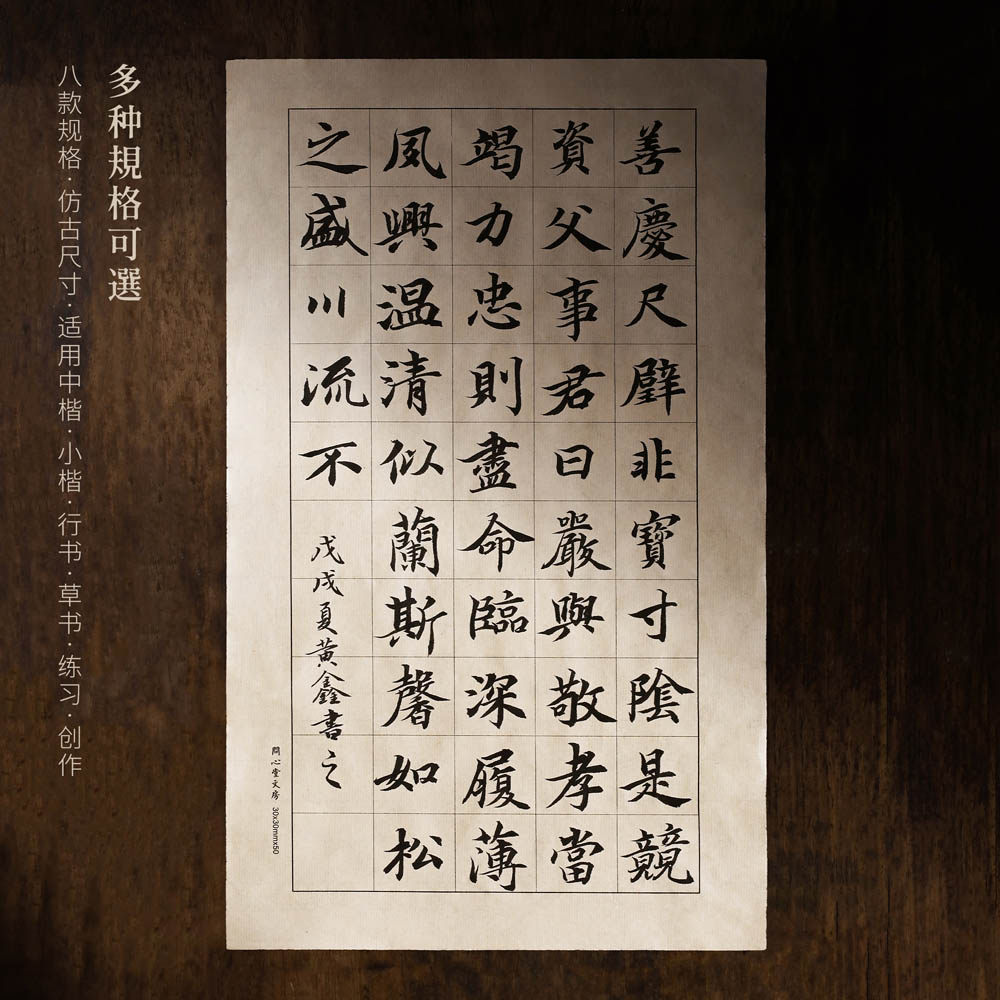 多种規格可選
八款规格·仿古尺寸·适用中楷·小楷·行书·草书·练习·创作
善慶尺璧非寶寸陰是競
資父事君曰嚴與敬孝當
竭力忠則盡命臨深履薄
夙興温清似蘭斯馨如松
之盛川流不
戊戌夏黄鑫書之
問心堂文房 30x30mmx50